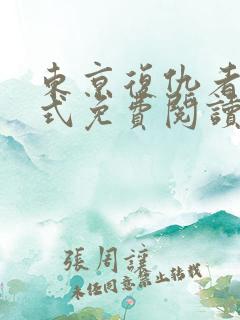 東京復仇者
式免費閱讀
張周謹
未任同意禁止转载